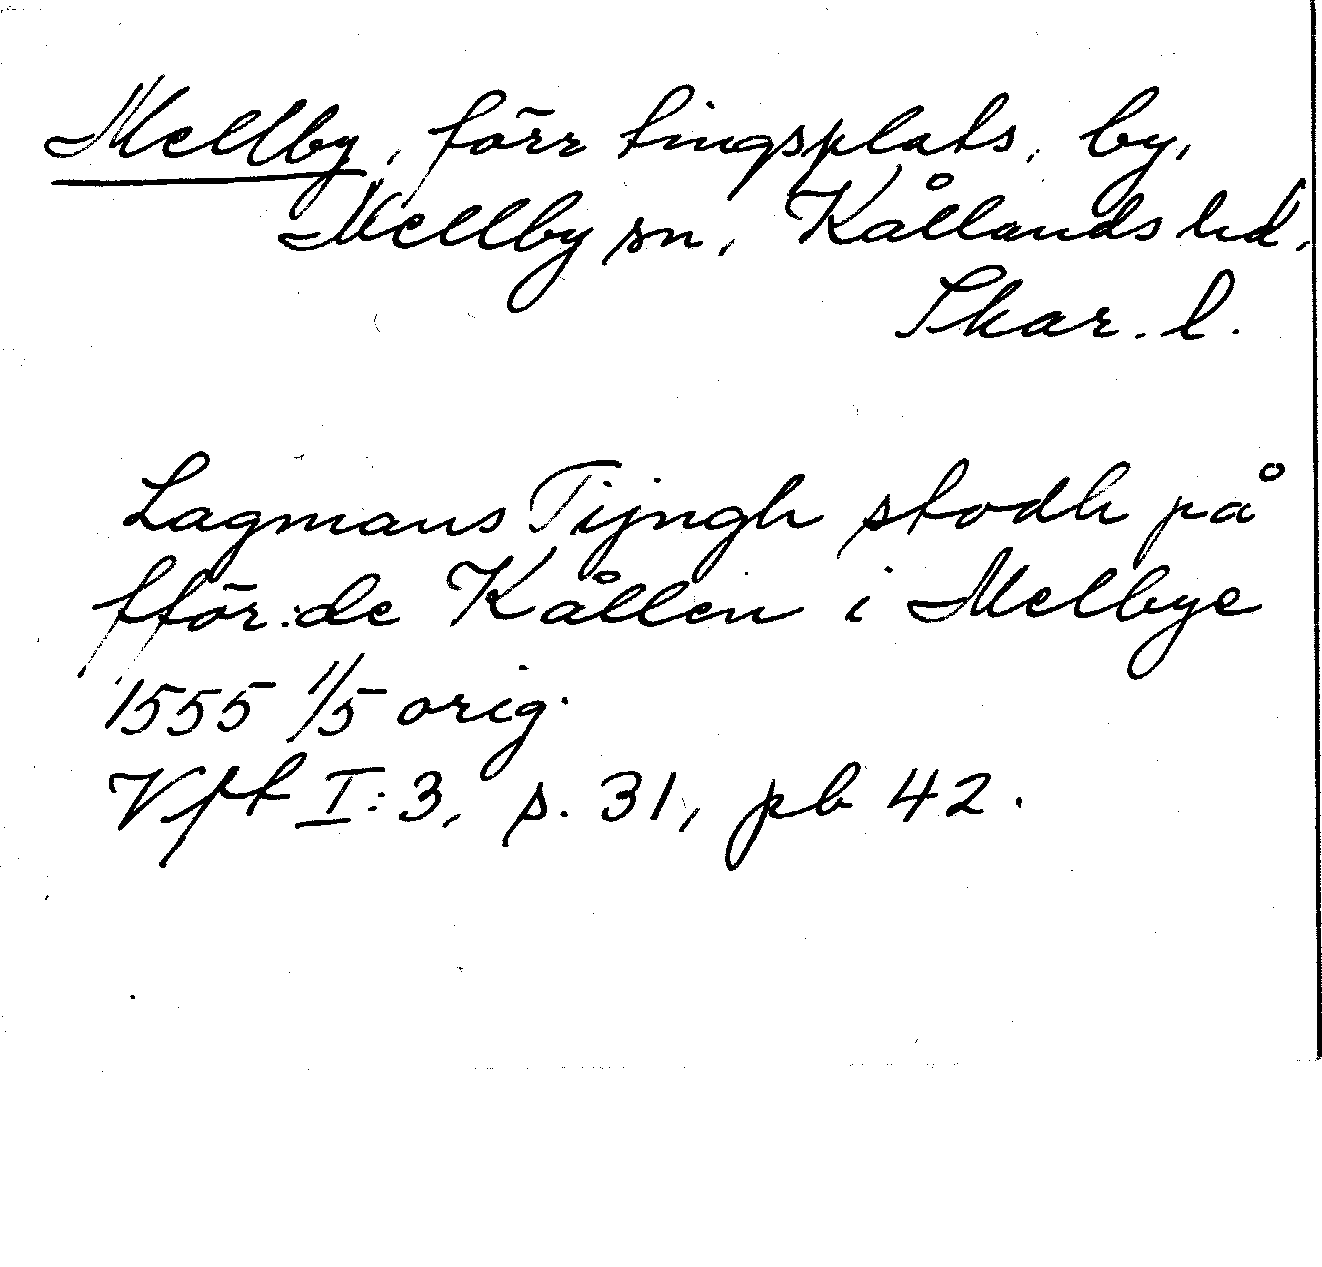 Mellby, förr tingsplats, by,
Mellby sn, Kållands hd,
Skar. l.
Lagmans Tijngh stodh på
fför:de Kållen i Melbye
1555 1/5 orig.
Vft I:3, p. 31, pb 42.